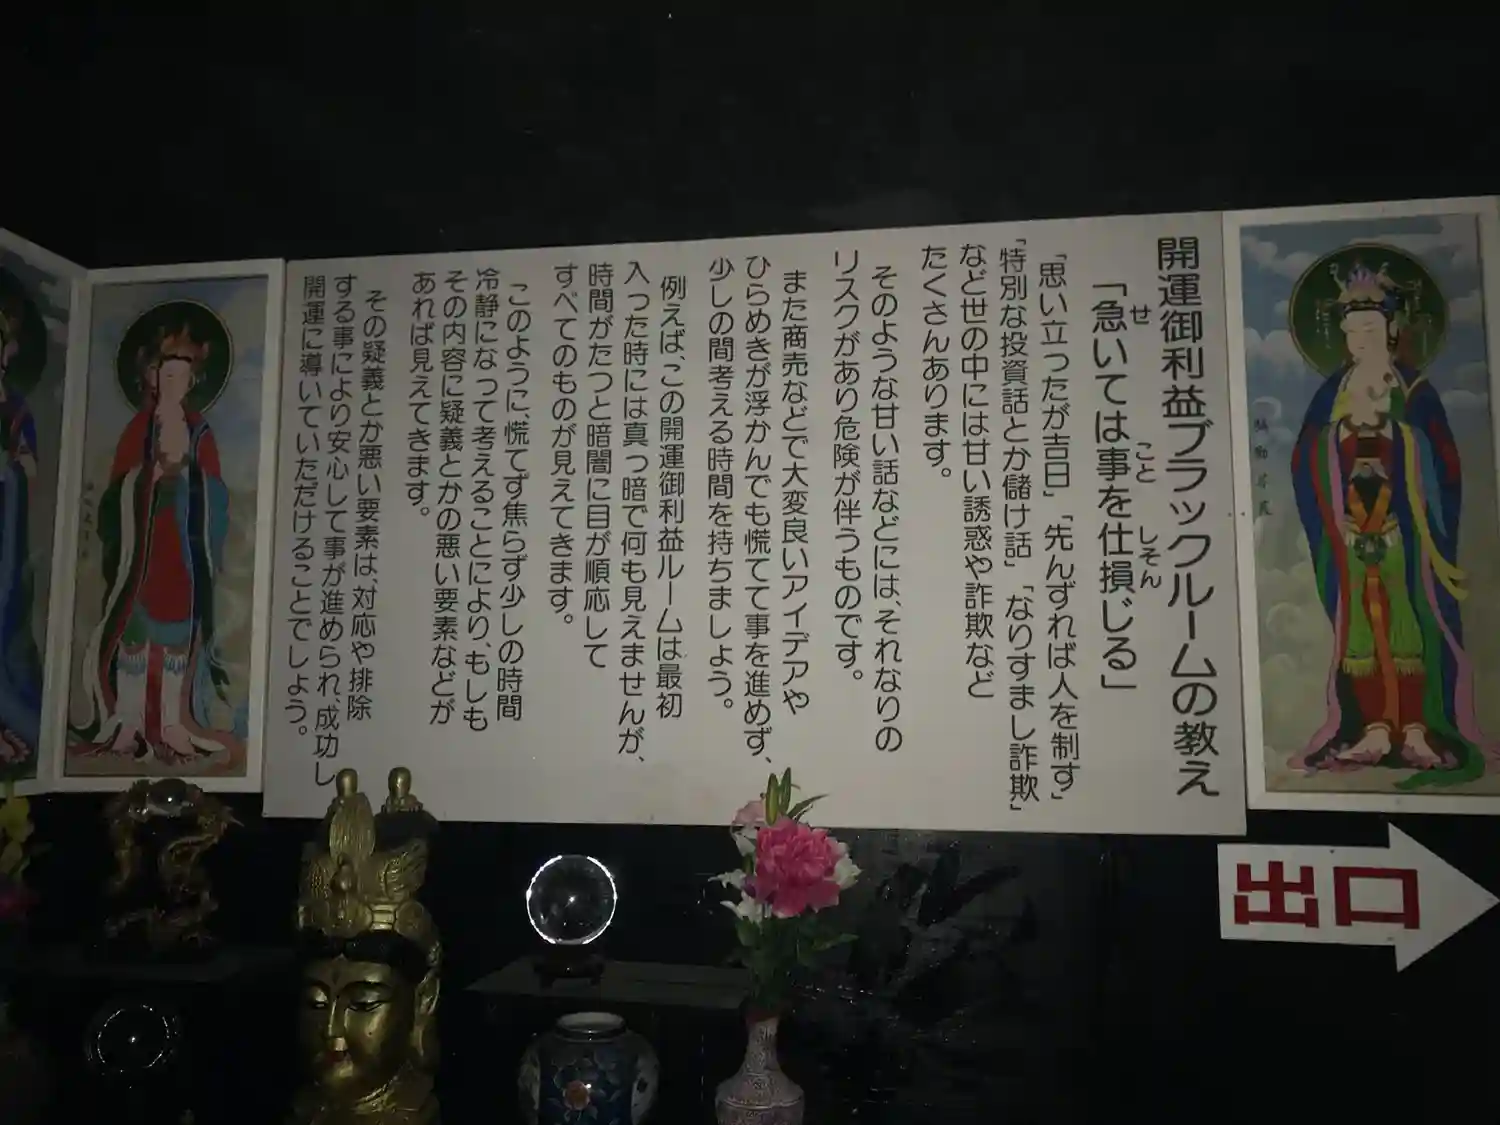 開運御利益ブラックルームの教え
「急いては事を仕損じる」
せ こと しそん
「思い立ったが吉日」「先んずれば人を制す」
「特別な投資話とか儲け話」「なりすまし詐欺」
など世の中には甘い誘惑や詐欺など
たくさんあります。
そのような甘い話などには、それなりの
リスクがあり危険が伴うものです。
また商売などで大変良いアイデアや
ひらめきが浮かんでも慌てて事を進めず、
少しの間考える時間を持ちましょう。
例えば、この開運御利益ルームは最初
入った時には真っ暗で何も見えませんが、
時間がたつと暗闇に目が順応して
すべてのものが見えてきます。
このように、慌てず焦らず少しの時間
冷静になって考えることにより、もしも
その内容に疑義とかの悪い要素などが
あれば見えてきます。
その疑義とか悪い要素は、対応や排除
する事により安心して事が進められ、成功し
開運に導いていただけることでしょう。
出口